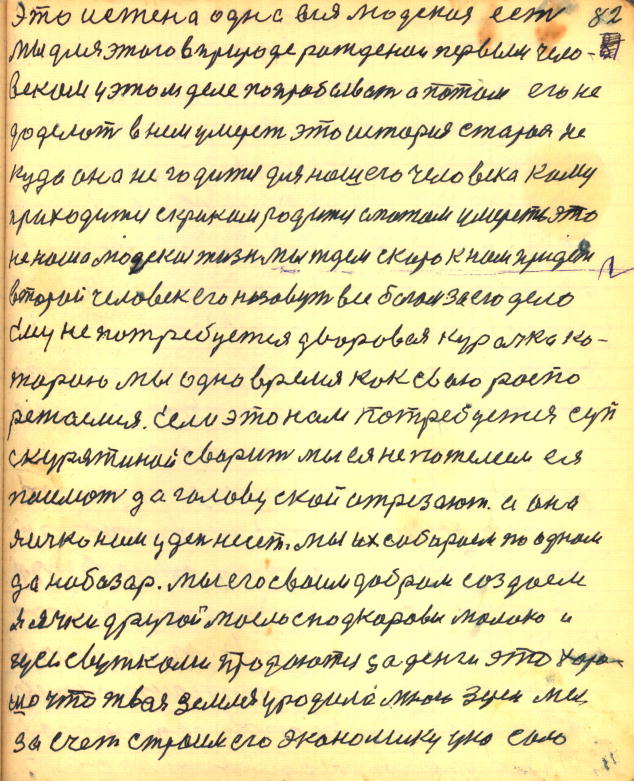 это истена одна вся людская есть 82
мы для этого в природе рождении первым чело-
веком у этом деле попробывать а потом его не
доделат в нем умереть это история старая не
куда она не годится для нашего человека кому
приходится скриком родится а потом умереть это
не наша людская жизнь мы ждем скоро к нам придет
второй человек его назовут все богом за его дело
ему не потребуется дворовая курочка ко-
торою мы одно время как своею распо
режаемся. если это нам потребуется суп
скурятиной сварит мы ея не пожелеем ея
паимают да голову ской отрезают. а она
яичко нам у ден несет. мы их собираем по одном
да на базар. мы его своим добром создаем
я яички другой масло спод карови молоко и
гусы свутками продаются за денги это хоро-
шо что твая земля уродила зерн мы
за счет строим его экономику уно соло